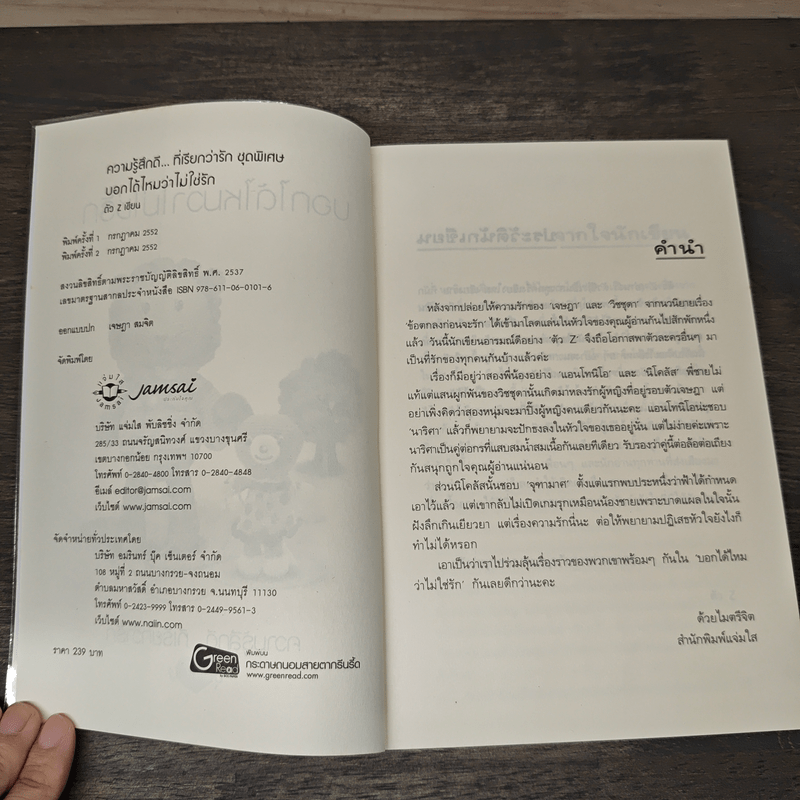 ความรู้สึกดี... ที่เรียกว่ารัก ชุดพิเศษ
บอกได้ไหมว่าไม่ใช่รัก
ตัว Z เขียน
พิมพ์ครั้งที่ 1 กรกฎาคม 2552
พิมพ์ครั้งที่ 2 กรกฎาคม 2552
สงวนลิขสิทธิ์ตามพระราชบัญญัติลิขสิทธิ์ พ.ศ. 2537
เลขมาตรฐานสากลประจำหนังสือ ISBN 978-611-06-0101-6
ออกแบบปก เจษฎา สมจิต
จัดพิมพ์โดย
Jamsai
บริษัท แจ่มใส พับลิชชิ่ง จำกัด
285/33 ถนนจรัญสนิทวงศ์ แขวงบางขุนศรี
เขตบางกอกน้อย กรุงเทพฯ 10700
โทรศัพท์ 0-2840-4800 โทรสาร 0-2840-4848
อีเมล์ editor@jamsai.com
เว็บไซต์ www.jamsai.com
จัดจำหน่ายทั่วประเทศโดย
บริษัท อมรินทร์ บุ๊ค เซ็นเตอร์ จำกัด
108 หมู่ที่ 2 ถนนบางกรวย-จงถนอม
ตำบลมหาสวัสดิ์ อำเภอบางกรวย จ.นนทบุรี 11130
โทรศัพท์ 0-2423-9999 โทรสาร 0-2449-9561-3
เว็บไซต์ www.naiin.com
ราคา 239 บาท
Green Read
พิมพ์บน
กระดาษถนอมสายตากรีนรี้ด
www.greenread.com
คำนำ
หลังจากปล่อยให้ความรักของ 'เจษฎา' และ 'วิชชุดา' จากนวนิยายเรื่อง
'ข้อตกลงก่อนจะรัก' ได้เข้ามาโลดแล่นในหัวใจของคุณผู้อ่านกันไปสักพักหนึ่ง
แล้ว วันนี้นักเขียนอารมณ์ดีอย่าง 'ตัว Z' จึงถือโอกาสพาตัวละครอื่นๆ มา
เป็นที่รักของทุกคนกันบ้างแล้วค่ะ
เรื่องก็มีอยู่ว่าสองพี่น้องอย่าง 'แอนโทนิโอ' และ 'นิโคลัส' พี่ชายไม่
แท้แต่แสนผูกพันของวิชชุดานั้นเกิดมาหลงรักผู้หญิงที่อยู่รอบตัวเจษฎา แต่
อย่าเพิ่งคิดว่าสองหนุ่มจะมาปิ๊งผู้หญิงคนเดียวกันนะคะ แอนโทนิโอน่ะชอบ
'นาริศา' แล้วก็พยายามจะปักธงลงในหัวใจของเธออยู่นั่น แต่ไม่ง่ายค่ะเพราะ
นาริศาเป็นคู่ต่อกรที่แสบสมน้ำสมเนื้อกันเลยทีเดียว รับรองว่าคู่นี้ต่อล้อต่อเถียง
กันสนุกถูกใจคุณผู้อ่านแน่นอน
ส่วนนิโคลัสนั้นชอบ 'จุฑามาศ' ตั้งแต่แรกพบประหนึ่งว่าฟ้าได้กำหนด
เอาไว้แล้ว แต่เขากลับไม่เปิดเกมรุกเหมือนน้องชายเพราะบาดแผลในใจนั้น
ฝังลึกเกินเยียวยา แต่เรื่องความรักนี่นะ ต่อให้พยายามปฏิเสธหัวใจยังไงก็
ทำไม่ได้หรอก
เอาเป็นว่าเราไปร่วมลุ้นเรื่องราวของพวกเขาพร้อมๆ กันใน 'บอกได้ไหม
ว่าไม่ใช่รัก' กันเลยดีกว่านะคะ
ด้วยไมตรีจิต
สำนักพิมพ์แจ่มใส